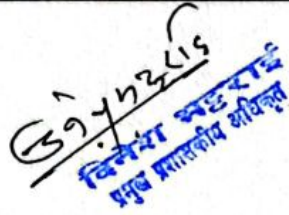 दिनेश भट्टराई
प्रमुख प्रशासकीय अधिकृत